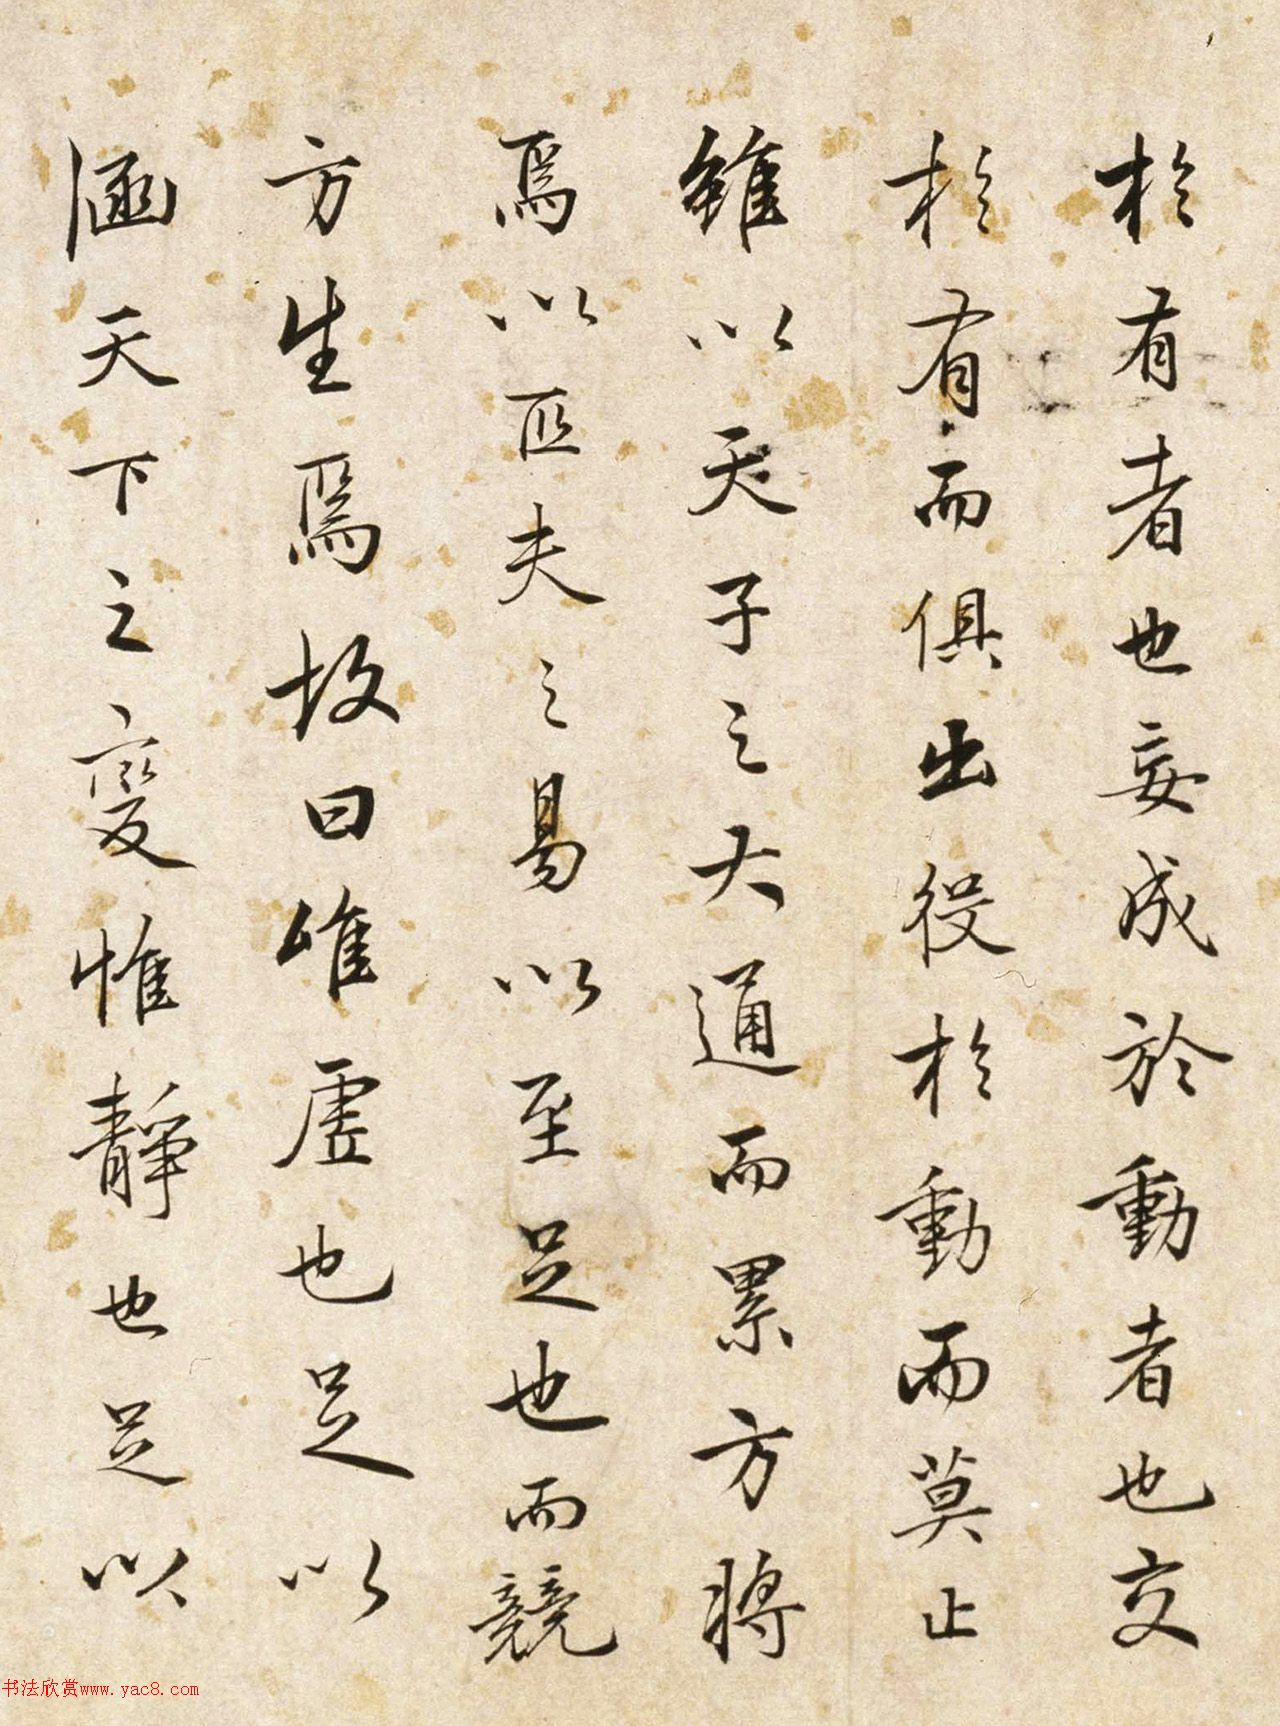 於有者也妄成於動者也交
於有而俱出役於動而莫止
雖以天子之大通而累方將
焉以匹夫之易以至足也而競
方生焉故曰唯虛也足以
涵天下之變惟靜也足以
书法欣赏www.yac8.com